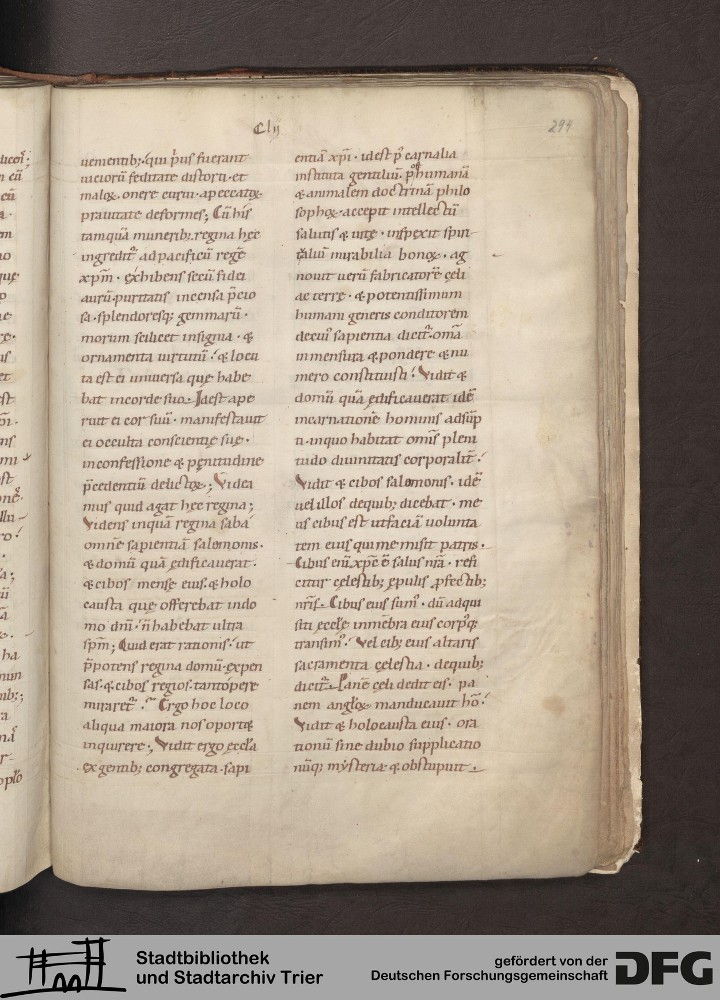 Clij
294
uementib; qui p̄us fuerant
uicioru᷑ feditate distorti et
maloꝝ onere curui · apeccatoꝝ
prauitate deformes; Cū his
tamquā munerib; regina hęc
ingredit᷑ ad pacificū regē
xp̄m · exhibens secū fidei
aurū · puritatis incensa p̄cio
sa · splendoresq; gemmarū ·
morum scilicet insignia · &
ornamenta uirtutū · & locu
ta est ei uniuersa quę habe
bat incorde suo · Idest ape
ruit ei cor suū · manifestauit
ei occulta conscientię suę ·
inconfessione & pęnitudine
p̄cedentiū delictoꝝ; Videa
mus quid agat hęc regina;
Videns inquā regina saba
omnē sapientiā salomonis ·
& domū quā edificauerat ·
& cibos mensę eius · & holo
causta quę offerebat indo
mo dn̄i · n̄ habebat ultra
sp̄m; Quid erat rationis · ut
p̄potens regina domū expen
sas · & cibos regios · tantopere
miraret᷑ · Ergo hoc loco
aliqua maiora nos oport&
inquirere · Vidit ergo ęccl̄a
ex gentib; congregata · sapi
entiā xp̄i · idest p᷑ carnalia
instituta gentiliū · p᷑ humanā
& animalem doctrinā philo
sophoꝝ · accepit intellectū
salutis & uitę · inspexit spiri
taliū mirabilia bonoꝝ · ag
nouit uerū fabricatorē cęli
ac terrę · & potentissimum
humani generis conditorem
decui᷒ sapientia dicit᷑ · om̄a
inmensura & pondere & nu
mero constituisti · Vidit &
domū quā edificauerat idē
incarnationē hominis adsūp
ti · inquo habitat om̄is pleni
tudo diuinitatis corporalit᷑ ·
Vidit & cibos salomonis · idē
uel illos dequib; dicebat · me
us cibus est utfaciā uolunta
tem eius qui me misit patris ·
Cibus enī xp̄c ē salus nr̄a · refi
citur cęlestib; epulis p̄fectib;
nr̄is · Cibus eius sum᷒ · dū adqui
siti ęcclę inmēbra eius corp᷒q;
transim᷒ · Vel cib; eius altaris
sacramenta cęlestia · dequib;
dicit᷑ · Panē cęli dedit eis · pa
nem angl̄oꝝ manducauit hō ·
Vidit & holocausta eius · ora
tionū sine dubio supplicatio
nūq; mysteria & obstupuit ·
Stadtbibliothek
und Stadtarchiv Trier
gefördert von der
Deutschen Forschungsgemeinschaft
DFG